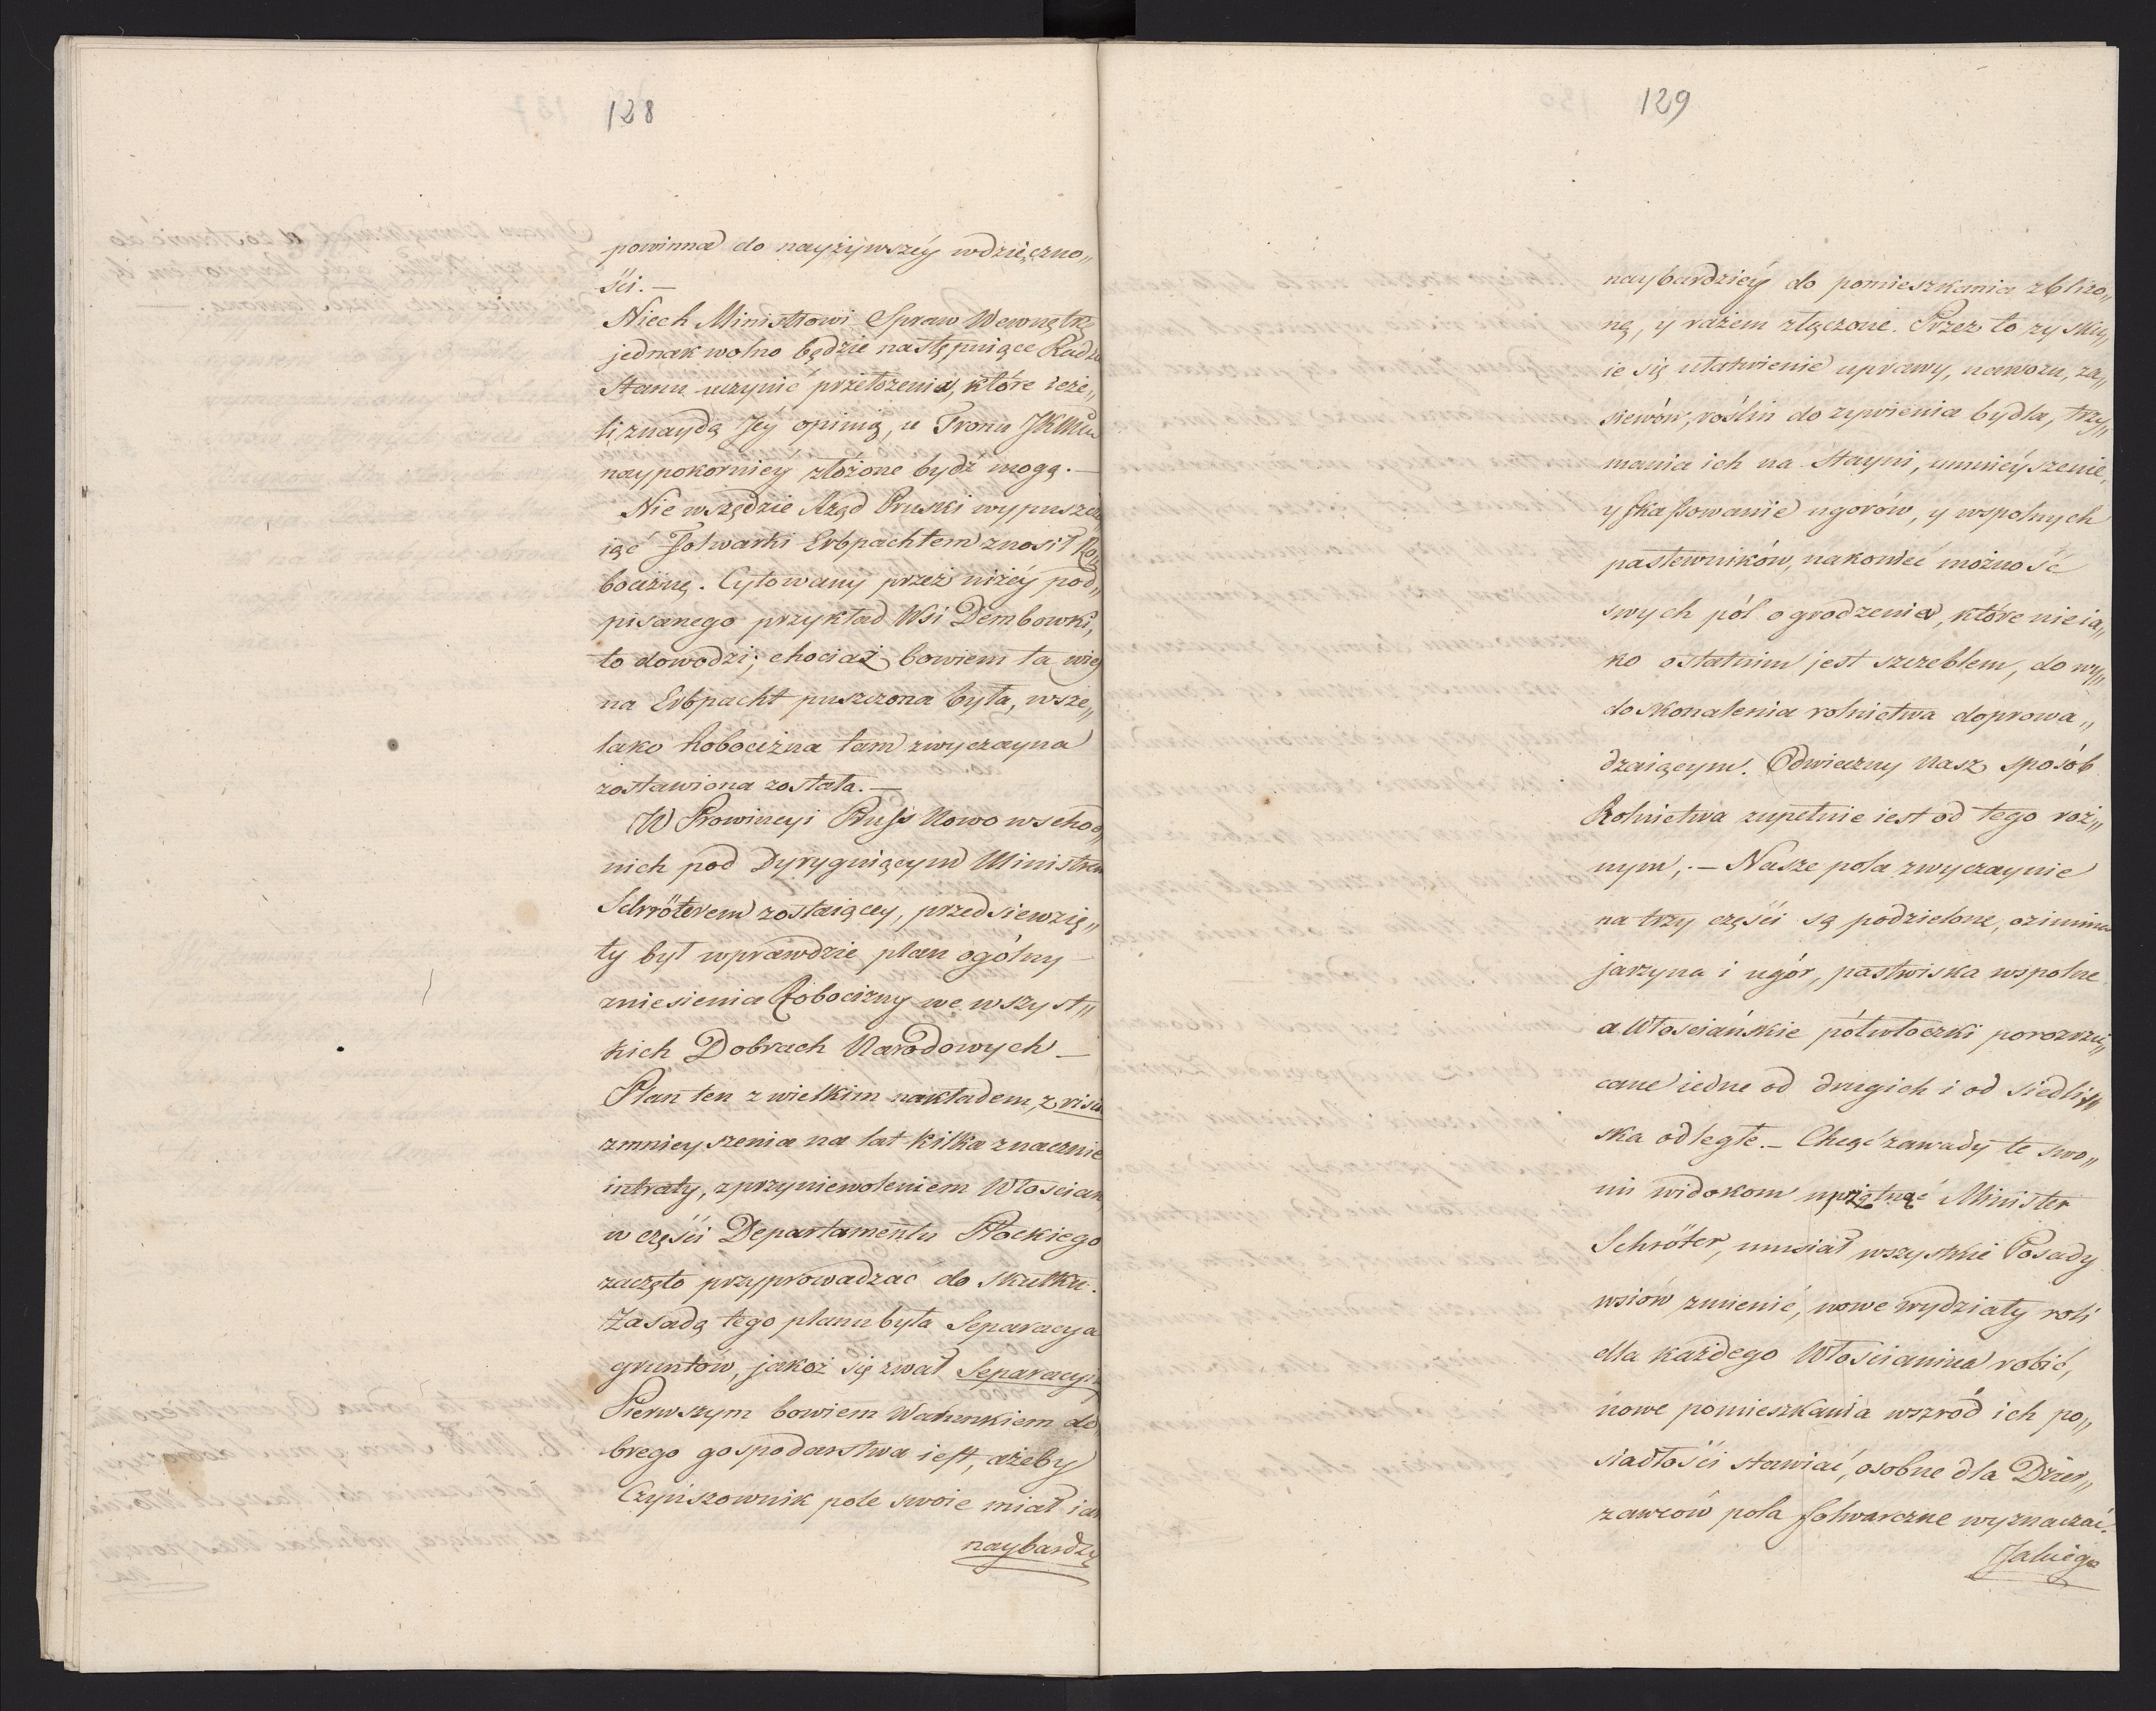 128
powinna do nayżywszéy wdzięczno„
ści. —
Niech Ministrowi Spraw Wewnętrz
jednak wolno będzie następuiące Radzie
Stanu uczynić przełożenia, które ieże„
li znaydą Jéy opinią, u Tronu JKMci
naypokorniéy złożone bydź mogą. —
Nie wszędzie Rząd Pruski wypuszcza
iąć Folwarki Erbpachtem znosił Ro„
bociznę. Cytowany przez niżéy pod„
pisanego przykład Wsi Dembowki,
to dowodzi; chociaż bowiem ta wieś
na Erbpacht puszczona była, wsze„
lako Robocizna tam zwyczayna
zostawiona została. —
W Prowincyi Pruss Nowo wschod„
nich pod Dyryguiącym Ministrem
Schröterem zostaiącey, przedsiewzię„
ty był wprawdzie plan ogólny
zniesienia Robocizny we wszyst„
kich Dobrach Narodowych —
Plan ten z wielkim nakładem, z risi
zmnieyszenia na lat kilka znacznie
intraty, z przyniewoleniem Włościan
w części Departamentu Płockiego
zaczęto przyprowadzać do skutku.
Zasadą tego planu była Separacya
gruntów, jakoż się zwał Separacyi
Pierwszym bowiem Warunkiem do
brego gospodarstwa iest, ażeby
Czynszownik pole swoie miał iak
naybardzi
129
naybardziéy do pomieszkania zbliżo„
ną, y razem złączone. Przez to zysku„
ie się ułatwienie uprawy, nawozu, za„
siewów, roślin do żywienia bydła, trzy„
mania ich na Stayni, umnieyszenie,
y skassowanie ugorów, y wspolnych
pastewników, nakoniec możność
swych pól ogrodzenia, które nieia„
ko ostatnim jest szczeblem, do wy„
doskonalenia rolnictwa doprowa„
dzaiącym. Odwieczny nasz sposób
Rolnictwa zupełnie iest od tego róż„
nym; — Nasze pola zwyczaynie
na trzy części są podzielone, ozimina
jarzyna i ugór, pastwiska wspolne
a Włościańskie półwłoczki porozrzu„
cane iedne od drugich i od siedli
ska odległe. — Chcąć zawady te swo„
im widokom uprzątnąć Minister
Schröter, musiał wszystkie Posady
wsiów zmienić, nowe wydziały roli
dla każdego Włościanina robić,
nowe pomieszkania wśzród ich po„
siadłości stawiać, osobne dla Dzier„
żawców pola folwarczne wyznaczać.
Jakiego